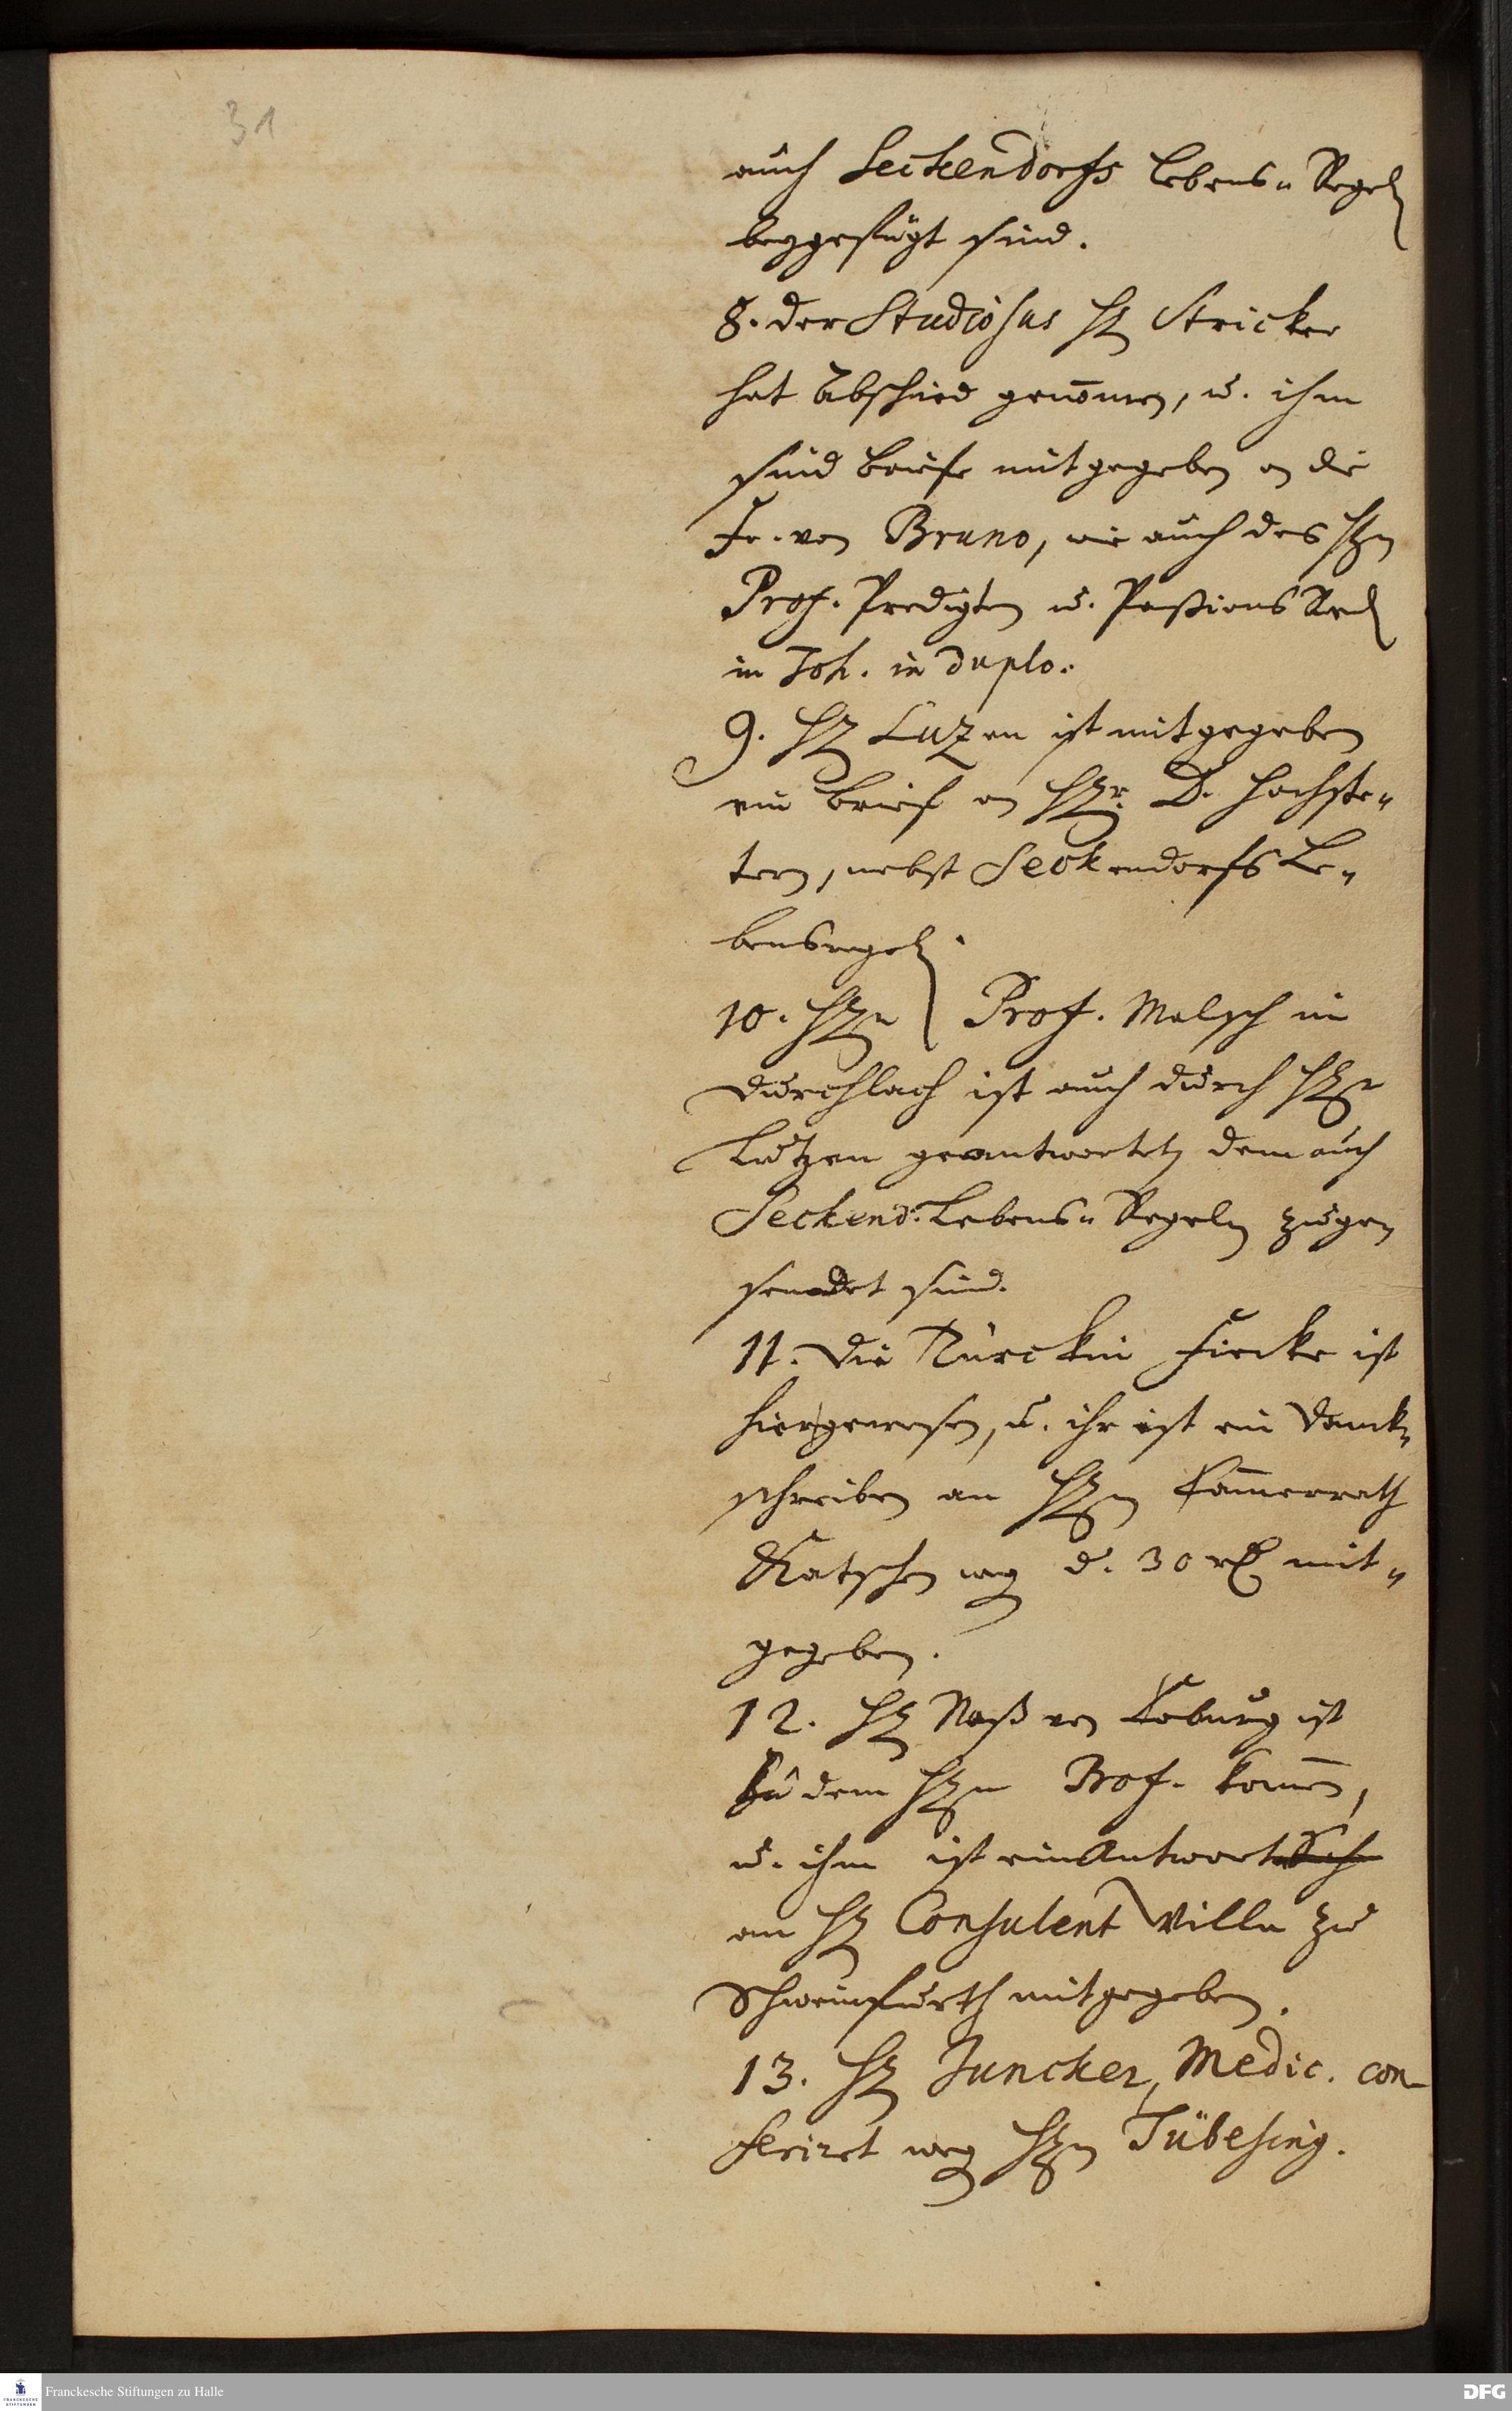 31
auch Seckendorfs Lebens-Regeln
beygefügt sind.
8. der Studiosus H. Stricker
hat Abschied genom̅en, u. ihm
sind Briefe mitgegeben an die
Fr. von Bruno, wie auch des Hn
Prof. Predigten u. Paßions Red
in Joh. in duplo.
9. H. Luzen ist mitgegeben
ein Brief an Hr. D. Hochste-
tern, nebst Seckendorfs Le-
bensregeln.
10. Hn Prof. Malsch in
Durchlach ist auch durch Hn
Lutzen geantwortet, dem auch
Seckend: Lebens-Regeln zuge-
sendet sind.
11. Die Türckin Fiecke ist
hier gewesen, u. ihr ist ein Danck-
schreiben an Hn Cam̅errath
Katschen weg d. 30 rth mit-
gegeben.
12. H. Naß von Coburg ist
zu dem Hn Prof. kom̅en,
u. ihm ist ein Antwort Sch
an H. Consulent Villa zu
Schweinfurth mitgegeben.
13. H. Juncker, Medic. con-
feriret weg Hn Tübesing.
Franckesche Stiftungen zu Halle
DFG